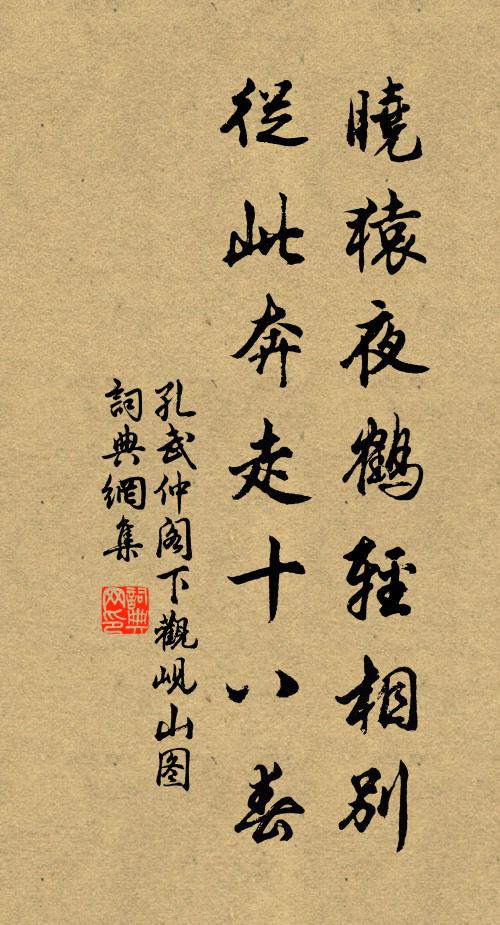 曉猿夜鶴輕相別
從此奔走十八春
孔武仲阁下觀峴山图
詞典網集
詞典
网印